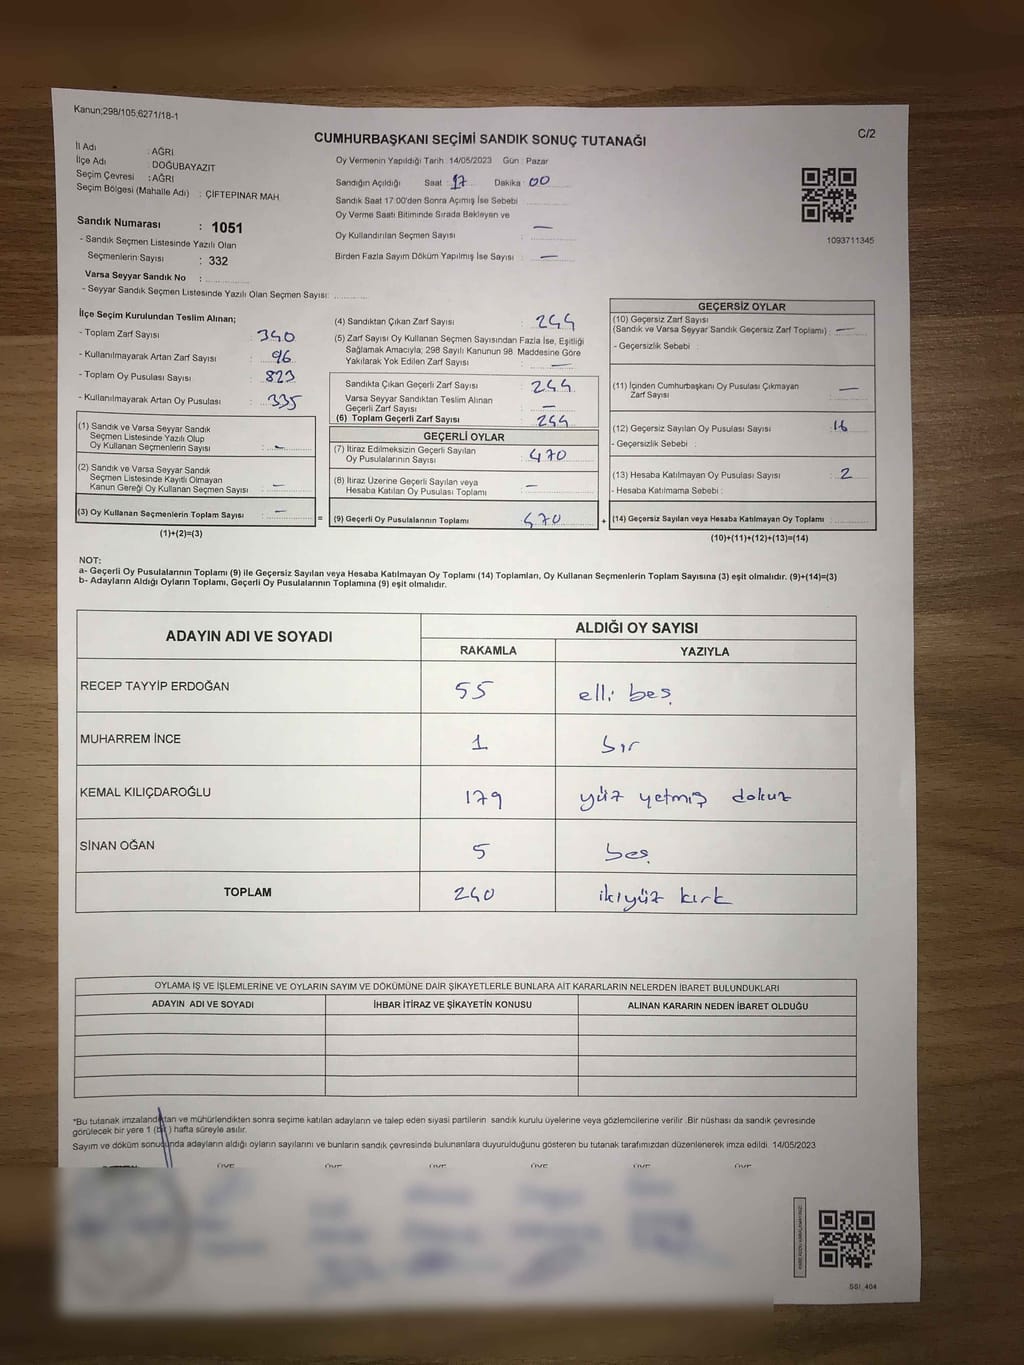 Kanun;298/105;6271/18-1
C/2
CUMHURBAŞKANI SEÇİMİ SANDIK SONUÇ TUTANAĞI
İl Adı : AĞRI
İlçe Adı : DOĞUBAYAZIT
Seçim Çevresi : AĞRI
Seçim Bölgesi (Mahalle Adı) : ÇİFTEPINAR MAH
Sandık Numarası : 1051
- Sandık Seçmen Listesinde Yazılı Olan
Seçmenlerin Sayısı : 332
Varsa Seyyar Sandık No :
- Seyyar Sandık Seçmen Listesinde Yazılı Olan Seçmen Sayısı:
Oy Vermenin Yapıldığı Tarih: 14/05/2023 Gün : Pazar
Sandığın Açıldığı Saat : 17 Dakika : 00
Sandık Saat 17:00'den Sonra Açımış İse Sebebi
Oy Verme Saati Bitiminde Sırada Bekleyen ve
Oy Kullandırılan Seçmen Sayısı : —
Birden Fazla Sayım Döküm Yapılmış İse Sayısı : —
1093711345
İlçe Seçim Kurulundan Teslim Alınan;
- Toplam Zarf Sayısı : 340
- Kullanılmayarak Artan Zarf Sayısı : 96
- Toplam Oy Pusulası Sayısı : 823
- Kullanılmayarak Artan Oy Pusulası : 335
(1) Sandık ve Varsa Seyyar Sandık
Seçmen Listesinde Yazılı Olup
Oy Kullanan Seçmenlerin Sayısı : —
(2) Sandık ve Varsa Seyyar Sandık
Seçmen Listesinde Kayıtlı Olmayan
Kanun Gereği Oy Kullanan Seçmen Sayısı : —
(3) Oy Kullanan Seçmenlerin Toplam Sayısı : —
(1)+(2)=(3)
(4) Sandıktan Çıkan Zarf Sayısı : 244
(5) Zarf Sayısı Oy Kullanan Seçmen Sayısından Fazla İse, Eşitliği
Sağlamak Amacıyla, 298 Sayılı Kanunun 98. Maddesine Göre
Yakılarak Yok Edilen Zarf Sayısı : —
Sandıkta Çıkan Geçerli Zarf Sayısı : 244
Varsa Seyyar Sandıktan Teslim Alınan
Geçerli Zarf Sayısı : —
(6) Toplam Geçerli Zarf Sayısı : 244
GEÇERLİ OYLAR
(7) İtiraz Edilmeksizin Geçerli Sayılan
Oy Pusulalarının Sayısı : 470
(8) İtiraz Üzerine Geçerli Sayılan veya
Hesaba Katılan Oy Pusulası Toplamı : —
= (9) Geçerli Oy Pusulalarının Toplamı : 470 +
GEÇERSİZ OYLAR
(10) Geçersiz Zarf Sayısı
(Sandık ve Varsa Seyyar Sandık Geçersiz Zarf Toplamı) : —
- Geçersizlik Sebebi :
(11) İçinden Cumhurbaşkanı Oy Pusulası Çıkmayan
Zarf Sayısı : —
(12) Geçersiz Sayılan Oy Pusulası Sayısı : 16
- Geçersizlik Sebebi :
(13) Hesaba Katılmayan Oy Pusulası Sayısı : 2
- Hesaba Katılmama Sebebi :
(14) Geçersiz Sayılan veya Hesaba Katılmayan Oy Toplamı :
(10)+(11)+(12)+(13)=(14)
NOT:
a- Geçerli Oy Pusulalarının Toplamı (9) ile Geçersiz Sayılan veya Hesaba Katılmayan Oy Toplamı (14) Toplamları, Oy Kullanan Seçmenlerin Toplam Sayısına (3) eşit olmalıdır. (9)+(14)=(3)
b- Adayların Aldığı Oyların Toplamı, Geçerli Oy Pusulalarının Toplamına (9) eşit olmalıdır.
ADAYIN ADI VE SOYADI
ALDIĞI OY SAYISI
RAKAMLA YAZIYLA
RECEP TAYYİP ERDOĞAN 55 elli beş
MUHARREM İNCE 1 bir
KEMAL KILIÇDAROĞLU 179 yüz yetmiş dokuz
SİNAN OĞAN 5 beş
TOPLAM 240 ikiyüz kırk
OYLAMA İŞ VE İŞLEMLERİNE VE OYLARIN SAYIM VE DÖKÜMÜNE DAİR ŞİKAYETLERLE BUNLARA AİT KARARLARIN NELERDEN İBARET BULUNDUKLARI
ADAYIN ADI VE SOYADI İHBAR İTİRAZ VE ŞİKAYETİN KONUSU ALINAN KARARIN NEDEN İBARET OLDUĞU
*Bu tutanak imzalandıktan ve mühürlendikten sonra seçime katılan adayların ve talep eden siyasi partilerin sandık kurulu üyelerine veya gözlemcilerine verilir .Bir nüshası da sandık çevresinde
görülecek bir yere 1 (bir) hafta süreyle asılır.
Sayım ve döküm sonucunda adayların aldığı oyların sayılarını ve bunların sandık çevresinde bulunanlara duyurulduğunu gösteren bu tutanak tarafımızdan düzenlenerek imza edildi. 14/05/2023
SSI_404